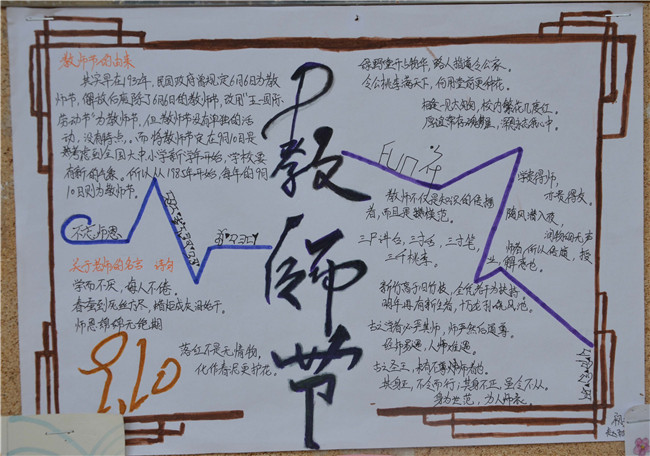 教师节的由来
其实早在1932年，民国政府曾规定6月6日为教
师节，解放后废除了6月6日的教师节，改用"五一国际
劳动节"为教师节，但教师节没有单独的活
动，没有特点。而将教师节定在9月10日是
考虑到全国大中小学新学年开始，学校要
有新的气象。所以从1985年开始，每年的9月
10日则为教师节。
不忘师恩
关于老师的名言 诗句
学而不厌，诲人不倦。
春蚕到死丝方尽，蜡炬成灰泪始干。
师恩绵绵无绝期
落红不是无情物，
化作春泥更护花。
9.10
教师节
绿野堂开占物华，路人指道令公家。
令公桃李满天下，何用堂前更种花。
FUN
教师不仅是知识的传播
者，而且是模范。
三尺讲台，三寸舌，三寸笔，
三千桃李。
新竹高于旧竹枝，全凭老干为扶持。
明年再有新生者，十丈龙孙绕凤池。
古之学者必严其师，师严然后道尊。
经师易遇，人师难遇。
古之圣王，未有不尊师者也。
其身正，不令而行；其身不正，虽令不从。
身为世范，为人师表。
学贵得师，
亦贵得友。
随风潜入夜，
润物细无声
师，所以传道，授
业，解惑也。